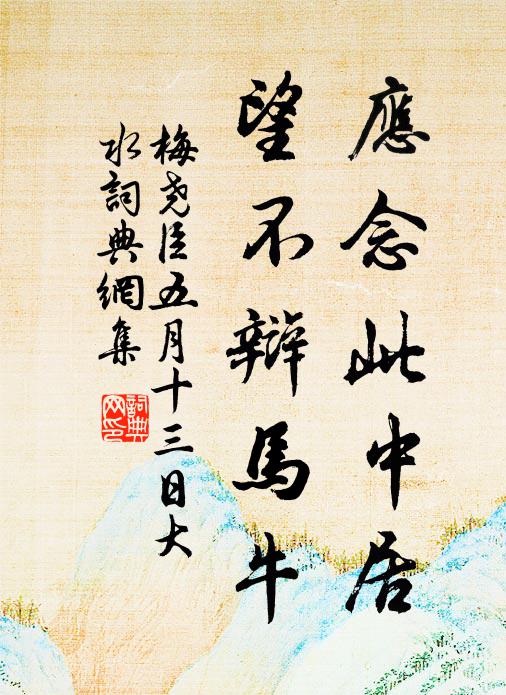 應念此中居
望不辯馬牛
梅尧臣五月十三日大
水詞典網集
詞典
网印